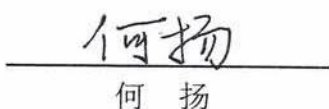 何扬
何 扬